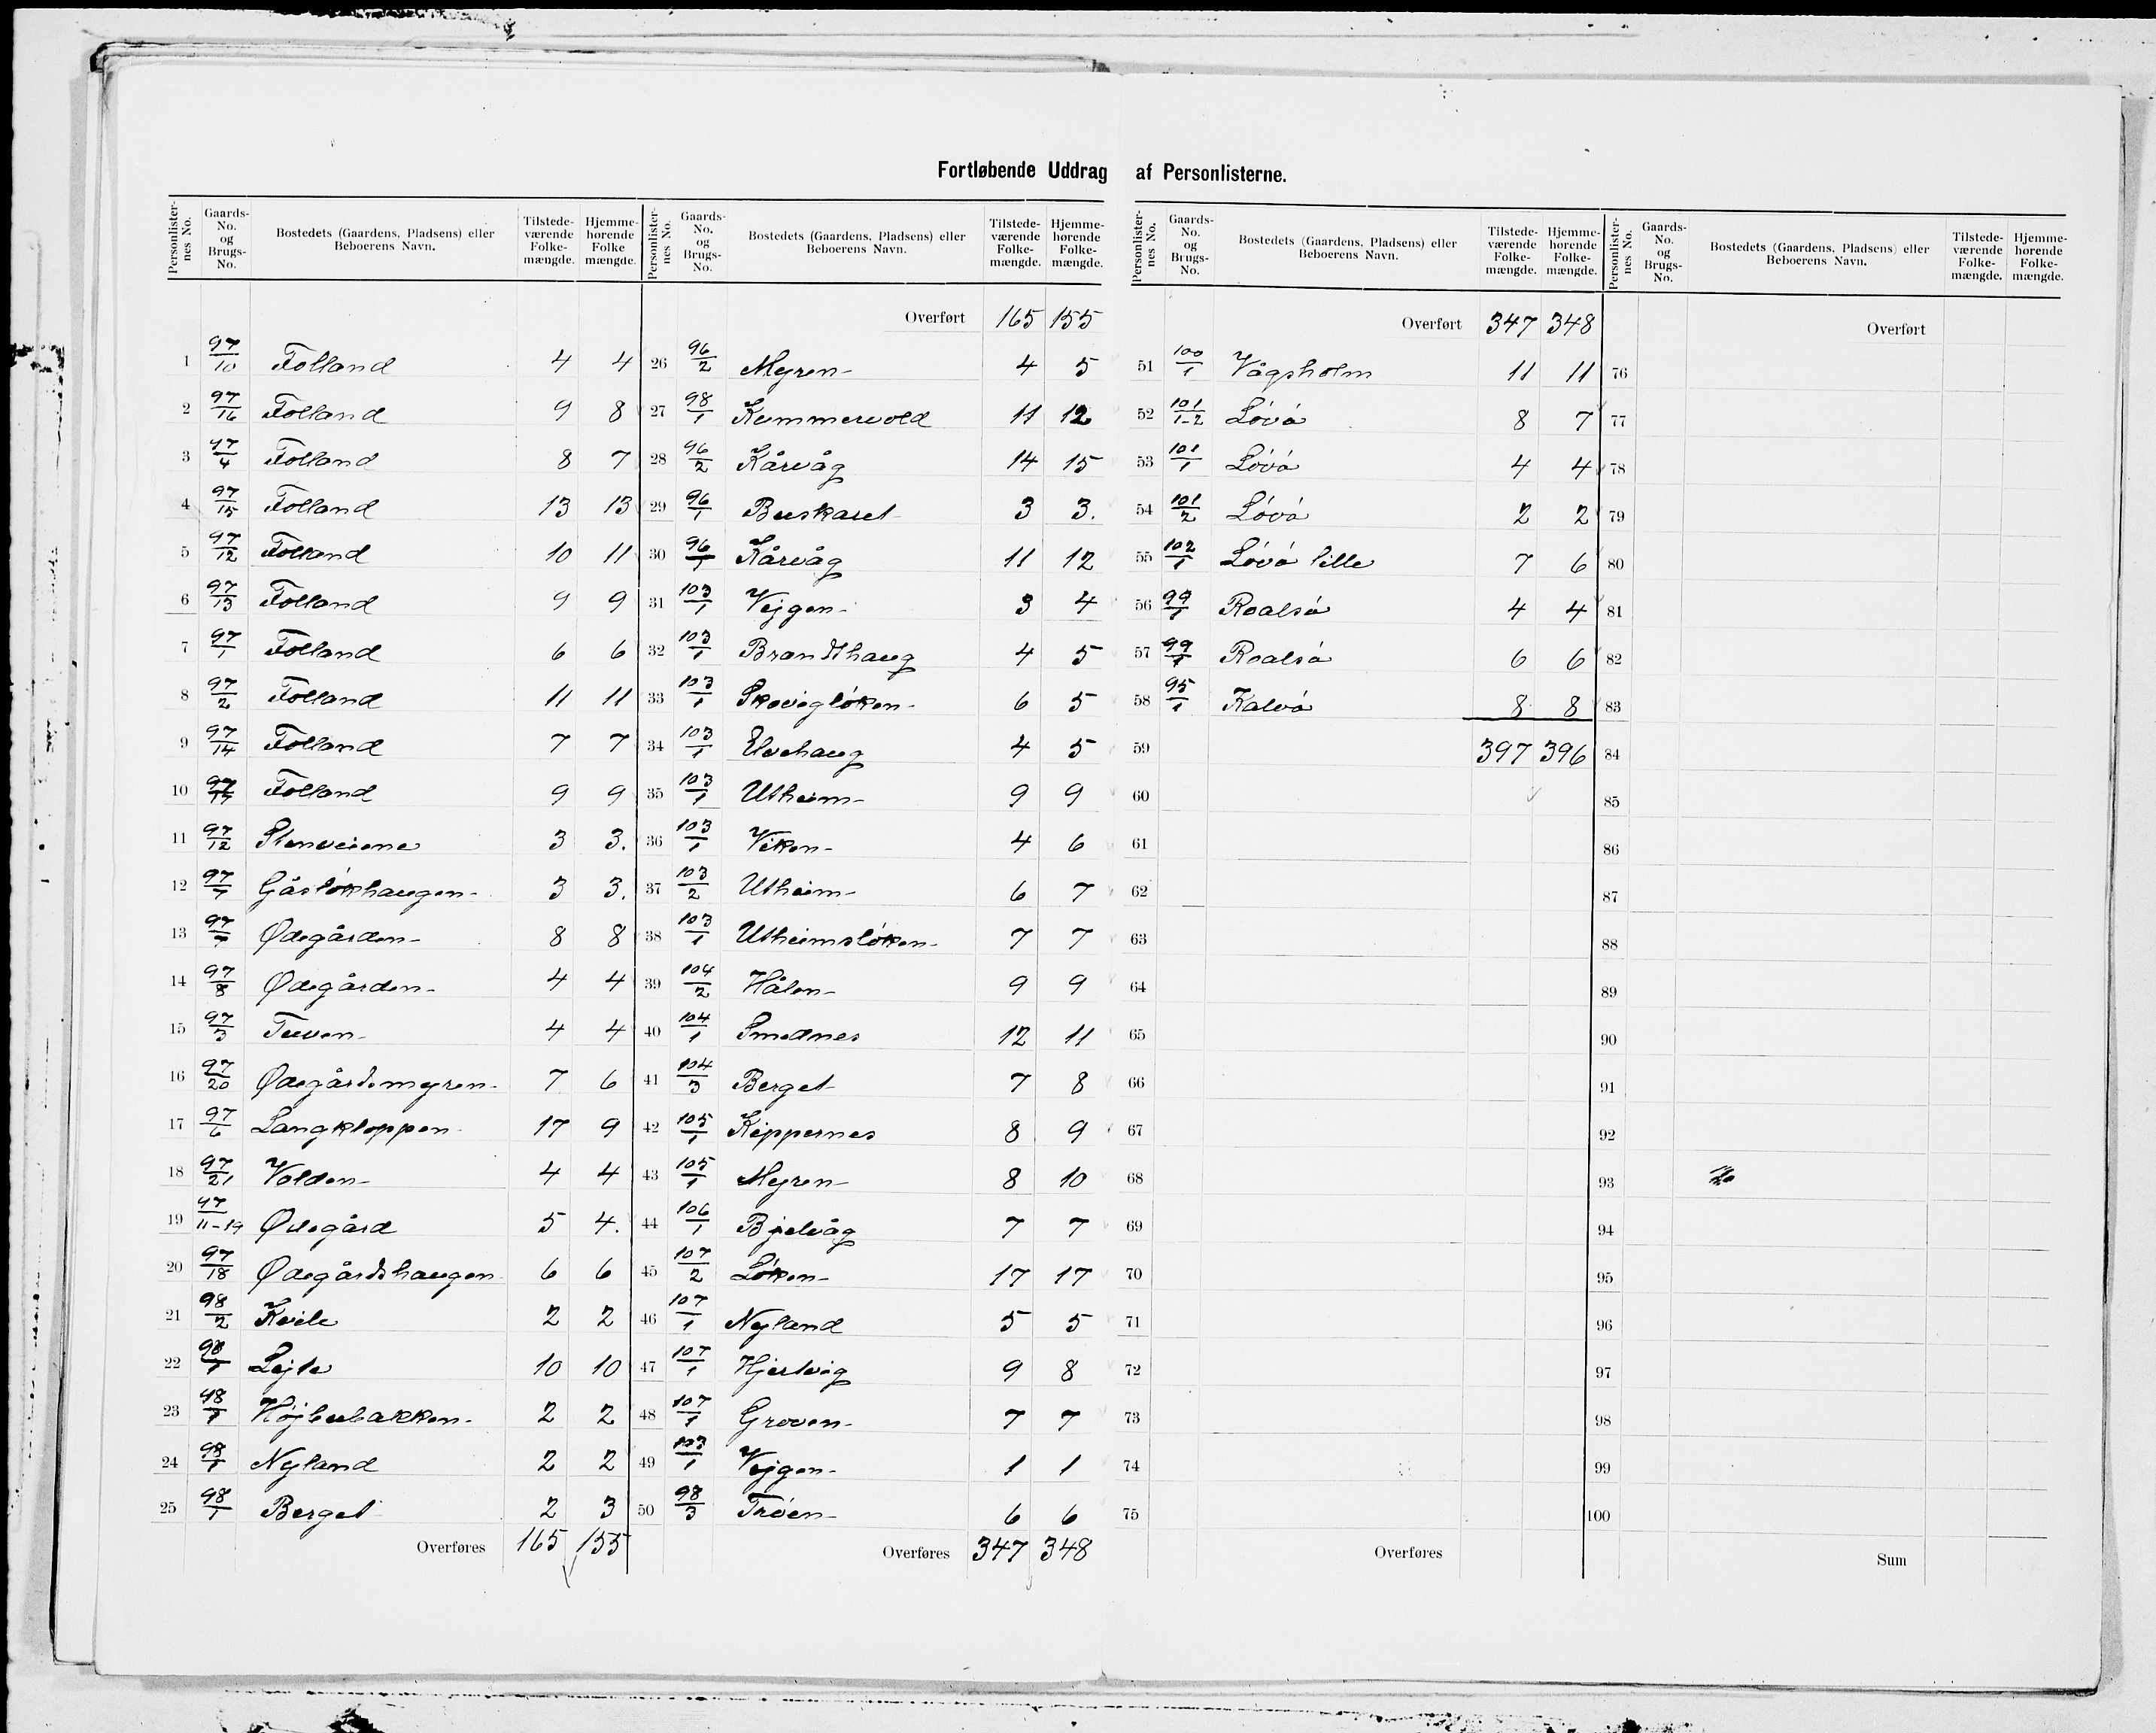 Fortløbende Uddrag af Personlisterne.
Personlister-nes No. | Gaards-No. og Brugs-No. | Bostedets (Gaardens, Pladsens) eller Beboerens Navn. | Tilstede-værende Folke-mængde. | Hjemme-hørende Folke mængde.
1 97/10 Folland 4 4
2 97/16 Folland 9 8
3 97/4 Folland 8 7
4 97/15 Folland 13 13
5 97/12 Folland 10 11
6 97/13 Folland 9 9
7 97/1 Folland 6 6
8 97/2 Folland 11 11
9 97/14 Folland 7 7
10 97/17 Folland 9 9
11 97/12 Stenveiene 3 3.
12 97/7 Gåsløkhaugen 3 3.
13 97/7 Ødegården 8 8
14 97/8 Ødegården 4 4
15 97/3 Tuven 4 4
16 97/20 Ødegårdsmyren 7 6
17 97/6 Langkloppen 17 9
18 97/21 Volden 4 4
19 97/11-19 Ødegård 5 4.
20 97/18 Ødegårdshaugen 6 6
21 98/2 Kvile 2 2
22 98/1 Lejte 10 10
23 98/1 Højbubakken 2 2
24 98/1 Nyland 2 2
25 98/1 Berget 2 3
Overføres 165 155
Personlister-nes No. | Gaards-No. og Brugs-No. | Bostedets (Gaardens, Pladsens) eller Beboerens Navn. | Tilstede-værende Folke-mængde. | Hjemme-hørende Folke-mængde.
Overført 165 155
26 96/2 Myren 4 5
27 98/1 Kummervold 11 12
28 96/2 Kårvåg 14 15
29 96/1 Buskaret 3 3.
30 96/1 Kårvåg 11 12
31 103/1 Vejgen 3 4
32 103/1 Brandshaug 4 5
33 103/1 Skovigløken 6 5
34 103/1 Elvehaug 4 5
35 103/1 Utheim 9 9
36 103/1 Viken 4 6
37 103/2 Utheim 6 7
38 103/1 Utheimsløken 7 7
39 104/2 Hålen 9 9
40 104/1 Smednes 12 11
41 104/3 Berget 7 8
42 105/1 Kippernes 8 9
43 105/1 Myren 8 10
44 106/1 Bjelvåg 7 7
45 107/2 Løken 17 17
46 107/1 Nyland 5 5
47 107/1 Hjertvig 9 8
48 107/1 Groven 7 7
49 103/1 Vejgen 1 1
50 98/3 Trøen 6 6
Overføres 347 348
Personlister-nes No. | Gaards-No. og Brugs-No. | Bostedets (Gaardens, Pladsens) eller Beboerens Navn. | Tilstede-værende Folke-mængde. | Hjemme-hørende Folke-mængde.
Overført 347 348
51 100/1 Vågsholm 11 11
52 101/1-2 Løvø 8 7
53 101/1 Løvø 4 4
54 101/2 Løvø 2 2
55 102/1 Løvø lille 7 6
56 99/1 Roalsø 4 4
57 99/1 Roalsø 6 6
58 95/1 Kalvø 8 8
59 397 396
60
61
62
63
64
65
66
67
68
69
70
71
72
73
74
75
Overføres
Personlister-nes No. | Gaards-No. og Brugs-No. | Bostedets (Gaardens, Pladsens) eller Beboerens Navn. | Tilstede-værende Folke-mængde. | Hjemme-hørende Folke-mængde.
Overført
76
77
78
79
80
81
82
83
84
85
86
87
88
89
90
91
92
93
94
95
96
97
98
99
100
Sum